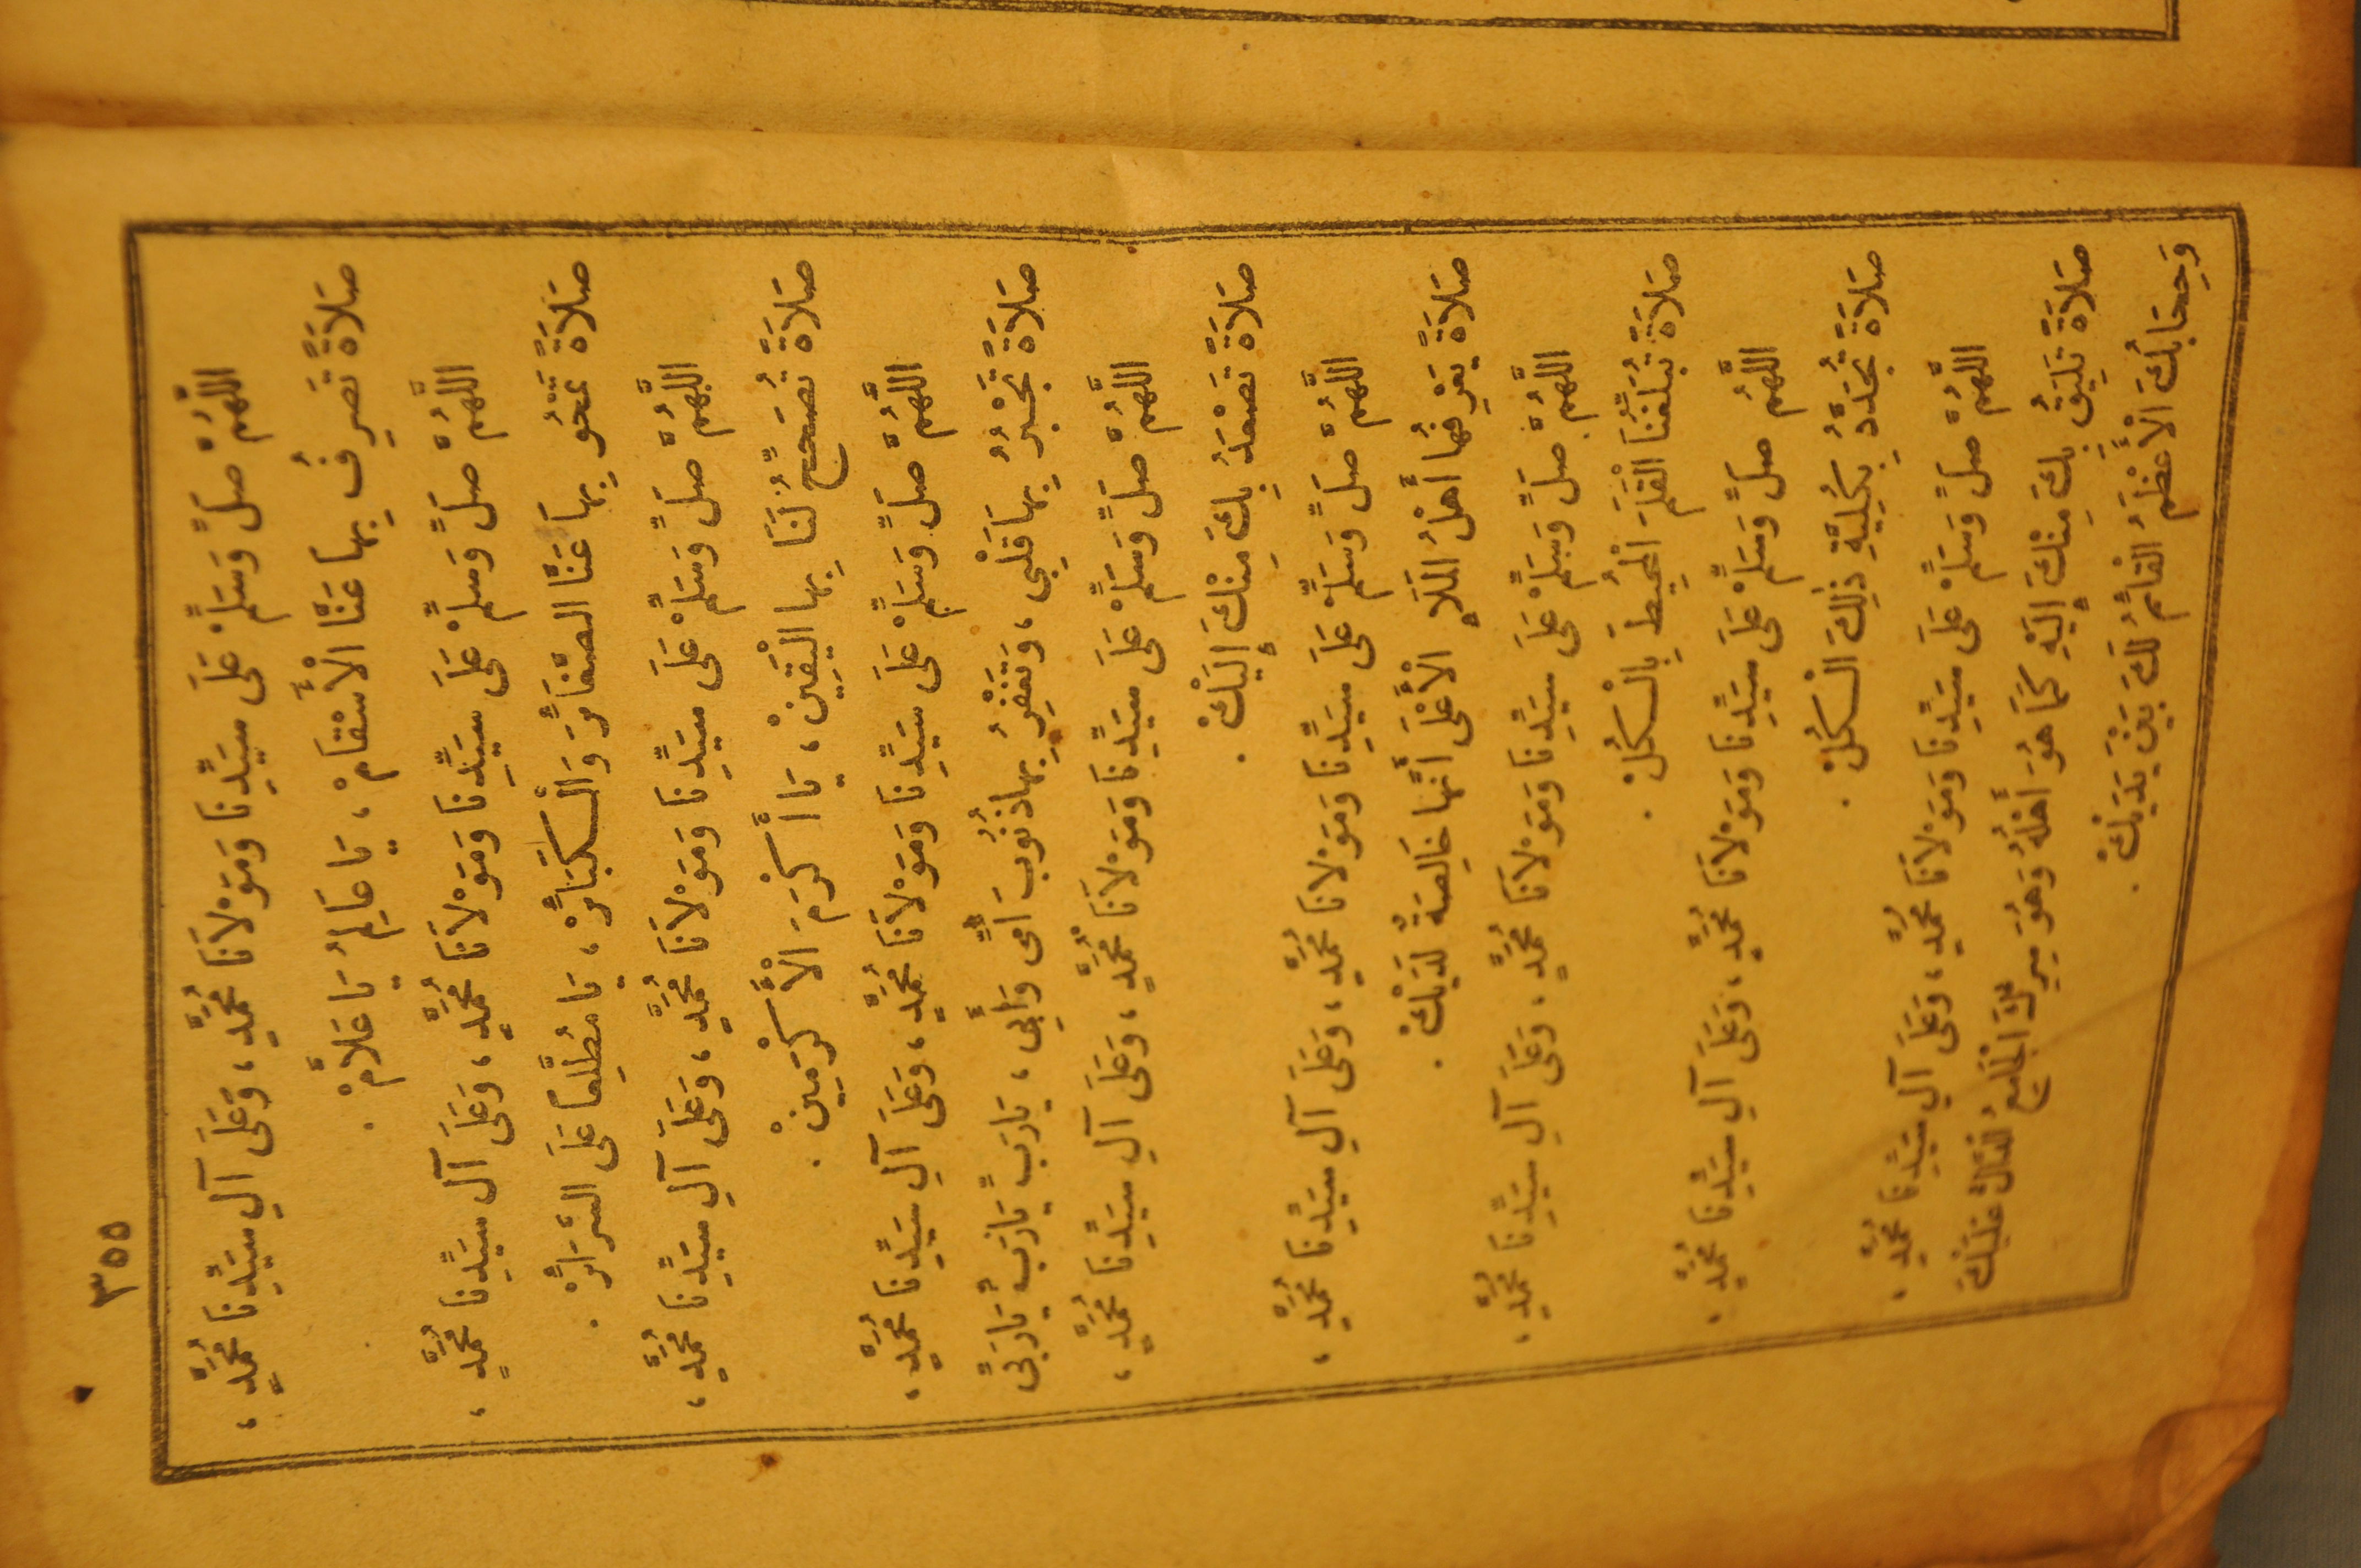 ٣٥٥
اللَّهُمَّ صَلِّ وَسَلِّمْ عَلَى سَيِّدِنَا وَمَوْلَانَا مُحَمَّدٍ، وَعَلَى آلِ سَيِّدِنَا مُحَمَّدٍ،
صَلَاةً تَصْرِفُ بِهَا عَنَّا الْأَسْقَامْ، يَا عَالِمُ يَا عَلَّامْ.
اللَّهُمَّ صَلِّ وَسَلِّمْ عَلَى سَيِّدِنَا وَمَوْلَانَا مُحَمَّدٍ، وَعَلَى آلِ سَيِّدِنَا مُحَمَّدٍ،
صَلَاةً تَمْحُو بِهَا عَنَّا الصَّغَائِرَ وَالْكَبَائِرْ، يَا مُطَّلِعًا عَلَى السَّرَائِرْ.
اللَّهُمَّ صَلِّ وَسَلِّمْ عَلَى سَيِّدِنَا وَمَوْلَانَا مُحَمَّدٍ، وَعَلَى آلِ سَيِّدِنَا مُحَمَّدٍ،
صَلَاةً تُصَحِّحُ لَنَا بِهَا الْيَقِينْ، يَا أَكْرَمَ الْأَكْرَمِينْ.
اللَّهُمَّ صَلِّ وَسَلِّمْ عَلَى سَيِّدِنَا وَمَوْلَانَا مُحَمَّدٍ، وَعَلَى آلِ سَيِّدِنَا مُحَمَّدٍ،
صَلَاةً تَجْبُرُ بِهَا قَلْبِي، وَتَغْفِرُ بِهَا ذُنُوبَ أُمِّى وَأَبِى، يَارَبِّ يَارَبِّ يَارَبِّى
اللَّهُمَّ صَلِّ وَسَلِّمْ عَلَى سَيِّدِنَا وَمَوْلَانَا مُحَمَّدٍ، وَعَلَى آلِ سَيِّدِنَا مُحَمَّدٍ،
صَلَاةً تَصْعَدُ بِكَ مِنْكَ إِلَيْكْ.
اللَّهُمَّ صَلِّ وَسَلِّمْ عَلَى سَيِّدِنَا وَمَوْلَانَا مُحَمَّدٍ، وَعَلَى آلِ سَيِّدِنَا مُحَمَّدٍ،
صَلَاةً يَعْرِفُهَا أَهْلُ الْمَلَإِ الْأَعْلَى أَنَّهَا خَالِصَةٌ لَدَيْكْ.
اللَّهُمَّ صَلِّ وَسَلِّمْ عَلَى سَيِّدِنَا وَمَوْلَانَا مُحَمَّدٍ، وَعَلَى آلِ سَيِّدِنَا مُحَمَّدٍ،
صَلَاةً تُبَلِّغُنَا الْقَلَمَ الْمُحِيطَ بِالْكُلْ.
اللَّهُمَّ صَلِّ وَسَلِّمْ عَلَى سَيِّدِنَا وَمَوْلَانَا مُحَمَّدٍ، وَعَلَى آلِ سَيِّدِنَا مُحَمَّدٍ،
صَلَاةً تُجَدَّدُ بِكُلِيَّةِ ذٰلِكَ الْكُلْ.
اللَّهُمَّ صَلِّ وَسَلِّمْ عَلَى سَيِّدِنَا وَمَوْلَانَا مُحَمَّدٍ، وَعَلَى آلِ سَيِّدِنَا مُحَمَّدٍ،
صَلَاةً تَلِيقُ بِكَ مِنْكَ إِلَيْهِ كَمَا هُوَ أَهْلُهُ وَهُوَ سِرُّكَ الْجَامِعُ الدَّالُّ عَلَيْكْ
وَحِجَابُكَ الْأَعْظَمُ الْقَائِمُ لَكَ بَيْنَ يَدَيْكْ.